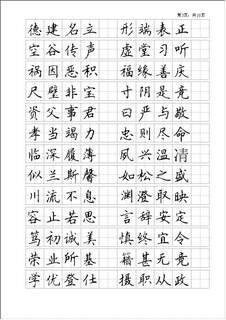 第3页，共20页
德建名立 形端表正
空谷传声 虚堂习听
祸因恶积 福缘善庆
尺璧非宝 寸阴是竞
资父事君 曰严与敬
孝当竭力 忠则尽命
临深履薄 夙兴温凊
似兰斯馨 如松之盛
川流不息 渊澄取映
容止若思 言辞安定
笃初诚美 慎终宜令
荣业所基 籍甚无竟
学优登仕 摄职从政